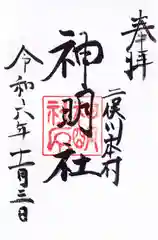 奉拝
二俣川本村
神明社
令和六年十一月三日